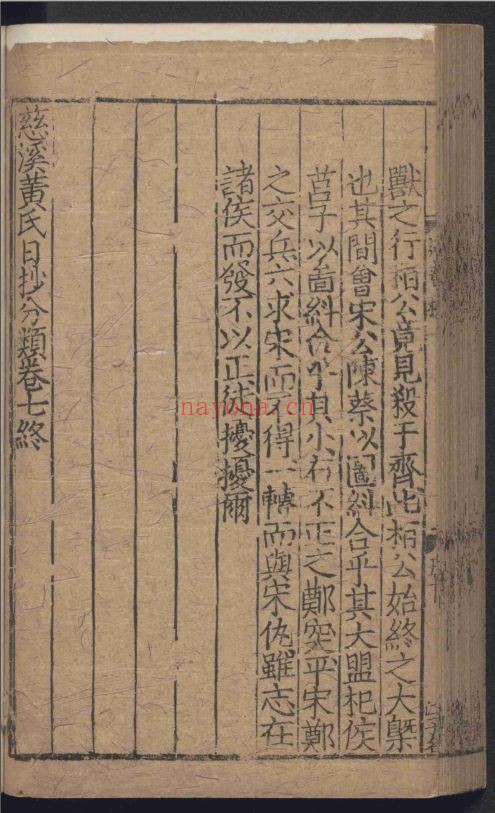 獸之行桓公竟見殺于齊此桓公始終之大槩
也其間會宋公陳蔡以圖糾合乎其大盟杞侯
莒子以圖糾合乎其小有不正之鄭突平宋鄭
之交兵六求宋而不得一轉而與宋仇雖志在
諸侯而發不以正徒擾擾爾
慈溪黃氏日抄分類卷七終
nayona.cn